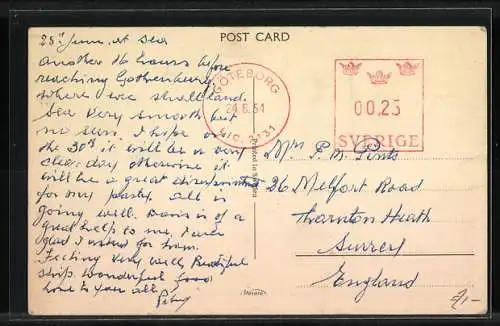 POST CARD
25th June, at sea
Another 16 hours before
reaching Gothenburg,
where we shall land.
Sea very smooth but
no sun. I hope on
the 30th it will be a very
clear day otherwise it
will be a great disappointment
for my party. All is
going well. Doris is of a
great help to me, I am
glad I waited for her.
Feeling very well, Beautiful
ship, wonderful food
love to you all,
GÖTEBORG
24.6.54
00.25
SVERIGE
Printed in Sweden
P. M.
26 Melfort Road
Thornton Heath
Surrey
England